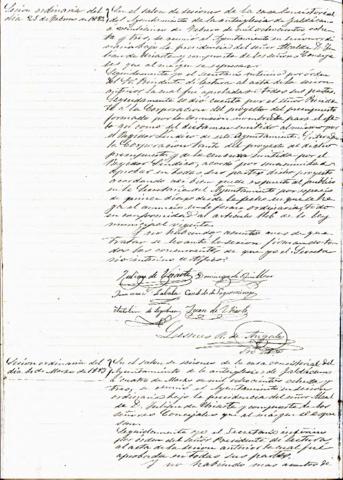 Sesion ordinaria del
dia 25 de Febrero de 1883
En el salon de sesiones de la casa consistorial
del Ayuntamiento de la anteiglesia de
de Febrero de mil ochocientos ochenta
y tres, se reunió el Ayuntamiento en sesion or-
dinaria bajo la presidencia del señor Alcalde D. Ju-
lian de Uriarte y compuesto de los señores Conceja-
les que al margen se expresan
Seguidamente yo el secretario interino por orden
del Sr. Presidente di lectura al acta de la sesion
anterior la cual fue aprobada en todas sus partes.
Seguidamente se dio cuenta por el señor Presiden-
te á la Corporacion del proyecto del presupuesto
formado por la comision nombrada para el efec-
to asi como del dictamen emitido al mismo por
el Regidor Sindico de este Ayuntamiento. Enterada
la Corporacion tanto del proyecto de dicho
presupuesto y de la censura emitida por el
Regidor Sindico, acordó por unanimidad
aprobar en todas sus partes dicho proyecto
acordando asi bien quede expuesto al publico
en la Secretaria del Ayuntamiento por espacio
de quince dias desde la fecha en que se ha-
ga el anuncio en los sitios ordinarios; todo
en conformidad al articulo 146 de la ley
municipal vigente.
Y no habiendo asuntos mas de que
tratar se levantó la sesion, firmando to-
dos los concurrentes de que yo el Secreta-
rio interino certifico.
Julian de Uriarte Domingo de
Juan de Uriarte
Sesion ordinaria del
dia 4 de Marzo de 1883
En el salon de sesiones de la casa consistorial del
Ayuntamiento de la anteiglesia de
á cuatro de Marzo de mil ochocientos ochenta y
tres, se reunió el Ayuntamiento en sesion
ordinaria bajo la presidencia del señor Alcal-
de D. Julian de Uriarte y compuesto de los
señores Concejales que al margen se expre-
san.
Seguidamente yo el Secretario interino
por orden del Señor Presidente di lectura
al acta de la sesion anterior la cual fue
aprobada en todas sus partes.
Y no habiendo mas asuntos de